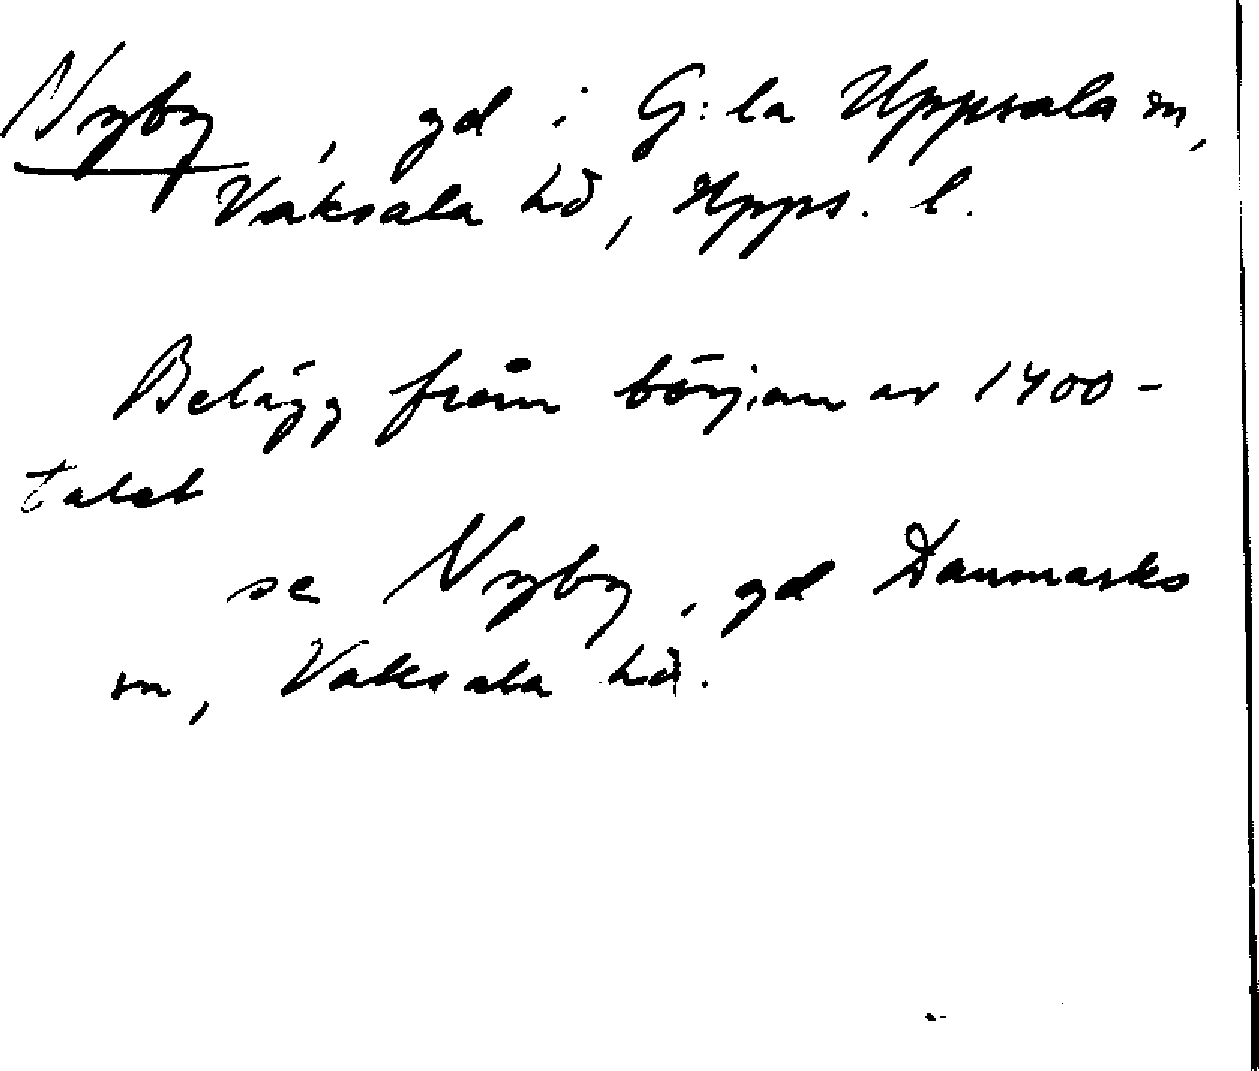 Nyby, gd i G:la Uppsala sn,
Vaksala hd, Upps. l.
Belägg från början av 1400-
talet
se Nyby, gd Danmarks
sn, Vaksala hd.